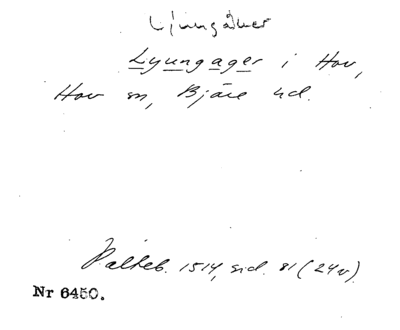 Ljungåker
Lyungager i Hov,
Hov sn, Bjäre hd.
Palteb. 1514, sid. 81 (24v).
Nr 6450.